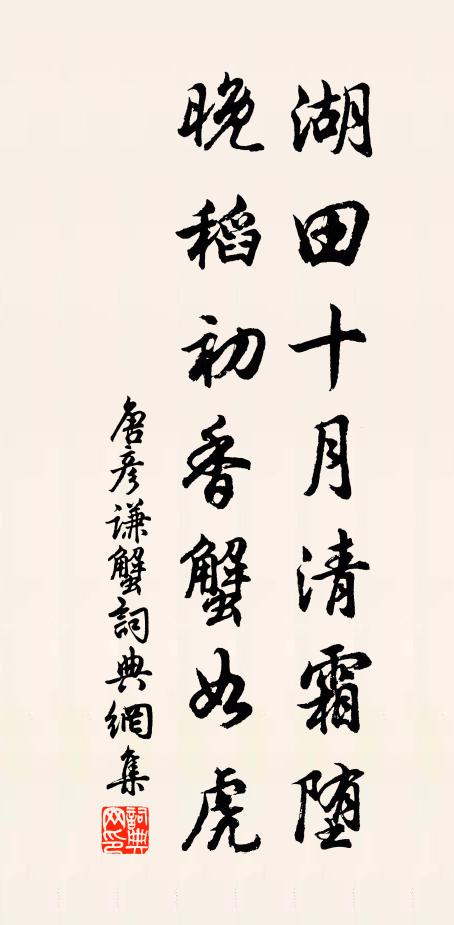 湖田十月清霜堕
晚稻初香蟹如虎
唐彦谦蟹詞典網集
詞典網印